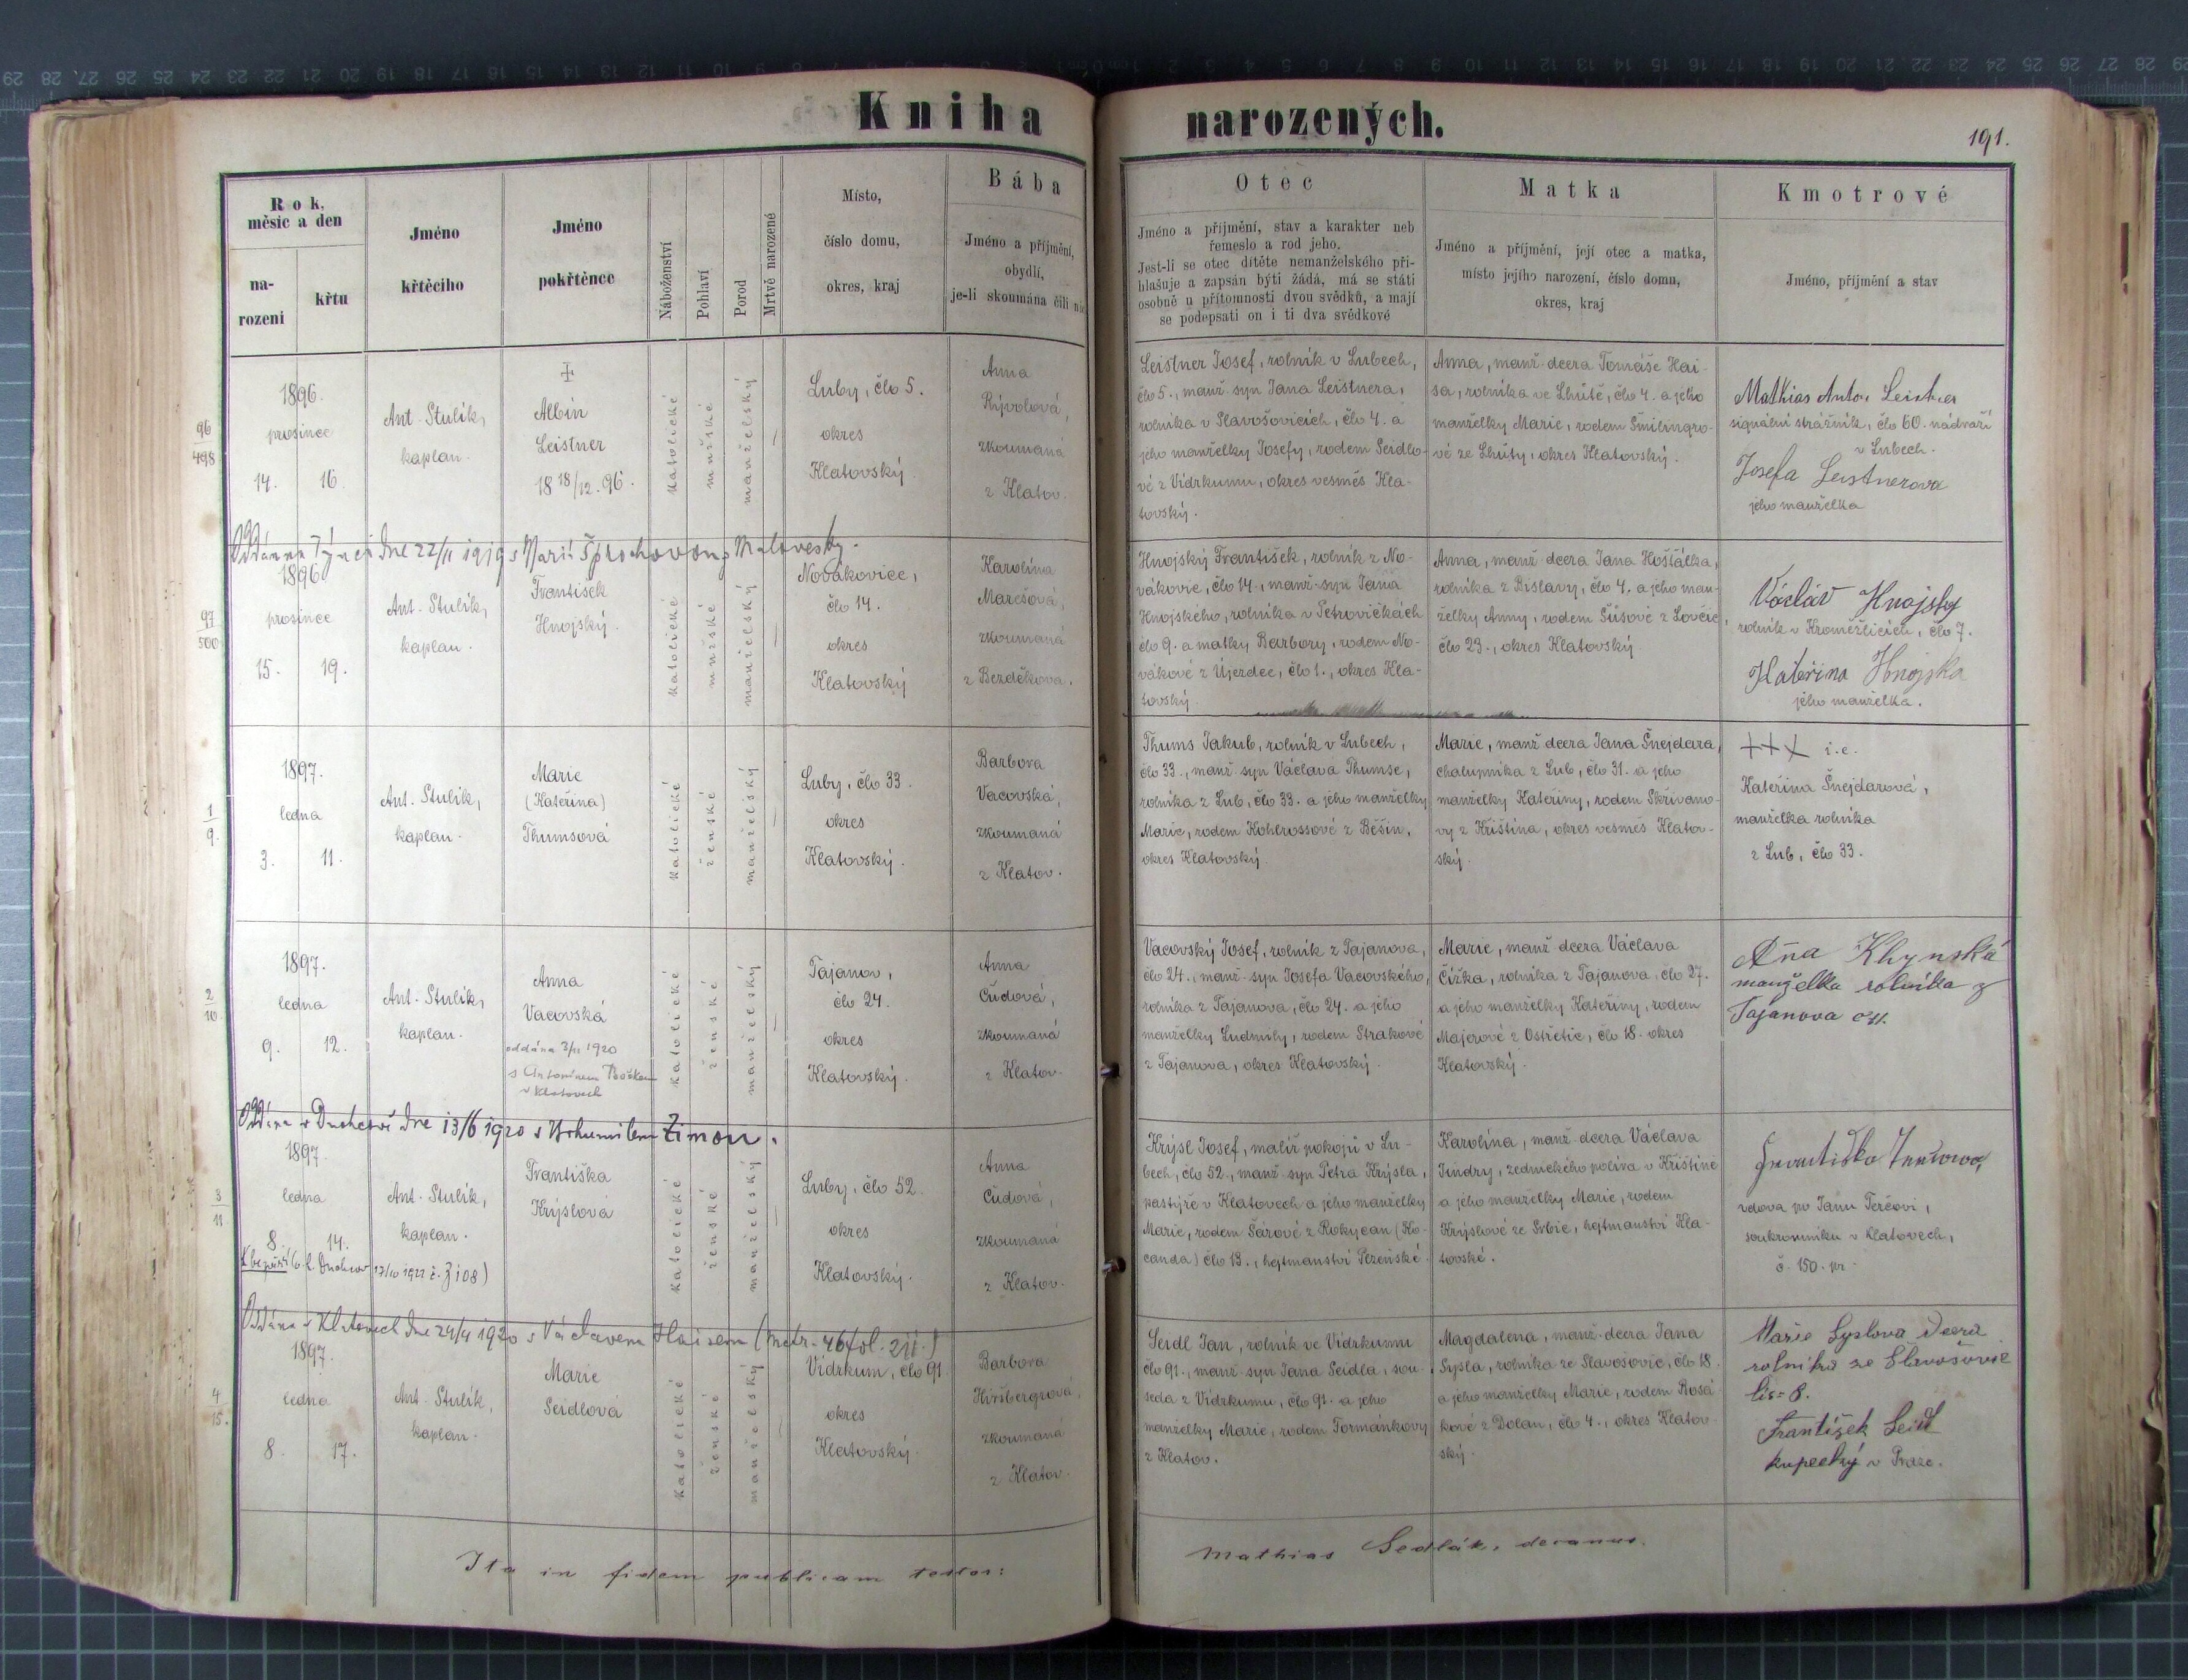 Kniha narozených.
191.
Rok, měsíc a den
na-
rození
křtu
Jméno
křtěcího
Jméno
pokřtěnce
Náboženství
Pohlaví
Porod
Mrtvě narozené
Místo,
číslo domu,
okres, kraj
Bába
Jméno a příjmění,
obydlí,
je-li skoumána čili nic
Otec
Jméno a příjmění, stav a karakter neb
řemeslo a rod jeho.
Jest-li se otec dítěte nemanželského při-
hlašuje a zapsán býti žádá, má se státi
osobně u přítomnosti dvou svědků, a mají
se podepsati on i ti dva svědkové
Matka
Jméno a příjmění, její otec a matka,
místo jejího narození, číslo domu,
okres, kraj
Kmotrové
Jméno, příjmění a stav
96
498
1896.
prosince
14. 16.
Ant. Stulík,
kaplan.
Albín
Leistner
18 18/12. 96.
katolické
mužské
manželský
Luby, člo 5.
okres
Klatovský
Anna
Rývolová,
zkoumaná
z Klatov.
Leistner Josef, rolník v Lubech,
člo 5., manž. syn Jana Leistnera,
rolníka v Slavošovicích, člo 4. a
jeho manželky Josefy, rodem Seidlo-
vé z Vídrkumu, okres vesměs Kla-
tovský.
Anna, manž. dcera Tomáše Hai-
sa, rolníka ve Lhůtě, člo 4. a jeho
manželky Marie, rodem Šmilingro-
vé ze Lhůty, okres Klatovský.
Mathias Anto. Leistner
signální strážník, člo 60. nádraží
v Lubech.
Josefa Leistnerova
jeho manželka
Oddán v Týnci dne 22/11 1919 s Marií Šprochovou z Malévesky.
97
500
1896
prosince
15. 19.
Ant. Stulík,
kaplan.
František
Hnojský.
katolické
mužské
manželský
Novákovice,
člo 14.
okres
Klatovský
Karolína
Marešová,
zkoumaná
z Bezděkova.
Hnojský František, rolník z No-
vákovic, člo 14., manž. syn Jana
Hnojského, rolníka v Petrovičkách
člo 9. a matky Barbory, rodem No-
vákové z Újezdce, člo 1., okres Kla-
tovský.
Anna, manž. dcera Jana Hošťálka,
rolníka z Bíslavy, člo 4. a jeho man-
želky Anny, rodem Šůsové z Lovčic,
člo 23., okres Klatovský.
Václav Hnojský
rolník v Kroměždicích, člo 7.
Kateřina Hnojska
jeho manželka.
1
9.
1897.
ledna
3. 11.
Ant. Stulík,
kaplan.
Marie
(Kateřina)
Thumsová
katolické
ženské
manželský
Luby, člo 33.
okres
Klatovský.
Barbora
Vacovská,
zkoumaná
z Klatov.
Thums Jakub, rolník v Lubech,
člo 33., manž. syn Václava Thumse,
rolníka z Lub, člo 33. a jeho manželky
Marie, rodem Kohlrossové z Běšin,
okres Klatovský.
Marie, manž. dcera Jana Šnejdara,
chalupníka z Lub, člo 31. a jeho
manželky Kateřiny, rodem Skřivano-
vy z Křištína, okres vesměs Klatov-
ský.
+++ i.e.
Kateřina Šnejdarová,
manželka rolníka
z Lub, člo 33.
2
10.
1897.
ledna
9. 12.
Ant. Stulík,
kaplan.
Anna
Vacovská
oddána 3/11 1920
s Antonínem
v Klatovech
katolické
ženské
manželský
Tajanov,
člo 24.
okres
Klatovský.
Anna
Čudová,
zkoumaná
z Klatov.
Vacovský Josef, rolník z Tajanova,
člo 24., manž. syn Josefa Vacovského,
rolníka z Tajanova, člo 24. a jeho
manželky Ludmily, rodem Strakové
z Tajanova, okres Klatovský.
Marie, manž. dcera Václava
Čížka, rolníka z Tajanova, člo 27.
a jeho manželky Kateřiny, rodem
Majerové z Ostřetic, člo 18. okres
Klatovský.
Aňa Klynská
manželka rolníka z
Tajanova
Oddána v Duchcově dne 13/6 1920 s Bohumilem Zimou.
3
11
1897.
ledna
8. 14.
Ant. Stulík,
kaplan.
Františka
Krýslová
17/10 1921 č. 3108)
katolické
ženské
manželský
Luby, člo 52.
okres
Klatovský.
Anna
Čudová,
zkoumaná
z Klatov.
Krýsl Josef, malíř pokojů v Lu-
bech, člo 52., manž. syn Petra Krýsla,
pastýře v Klatovech a jeho manželky
Marie, rodem Šárové z Rokycan (Ko-
canda) člo 13., hejtmanství Plzeňské.
Karolína, manž. dcera Václava
Jindry, zednického políra v Křištíně
a jeho manželky Marie, rodem
Krýslové ze Srbic, hejtmanství Kla-
tovské.
Františka
vdova po Janu Terčovi,
soukromníku v Klatovech,
č. 150. pr.
Oddána v Klatovech dne 24/4 1920 s Václavem Haisem (matr. 46 fol. 211.)
4
15.
1897.
ledna
8. 17.
Ant. Stulík,
kaplan.
Marie
Seidlová
katolické
ženské
manželský
Vídrkum, člo 91
okres
Klatovský.
Barbora
Hiršbergrová,
zkoumaná
z Klatov.
Seidl Jan, rolník ve Vídrkumu
člo 91., manž. syn Jana Seidla, sou-
seda z Vídrkumu, člo 91. a jeho
manželky Marie, rodem Formánkovy
z Klatov.
Magdalena, manž. dcera Jana
Sypla, rolníka ze Slavošovic, člo 18.
a jeho manželky Marie, rodem Rosá-
kové z Dolan, člo 4., okres Klatov-
ský.
Marie Syslova dcera
rolníka ze Slavošovic
čís. 8.
František Seidl
kupecký v Praze.
Ita in fidem publicam testor:
Mathias Sedlák, decanus.